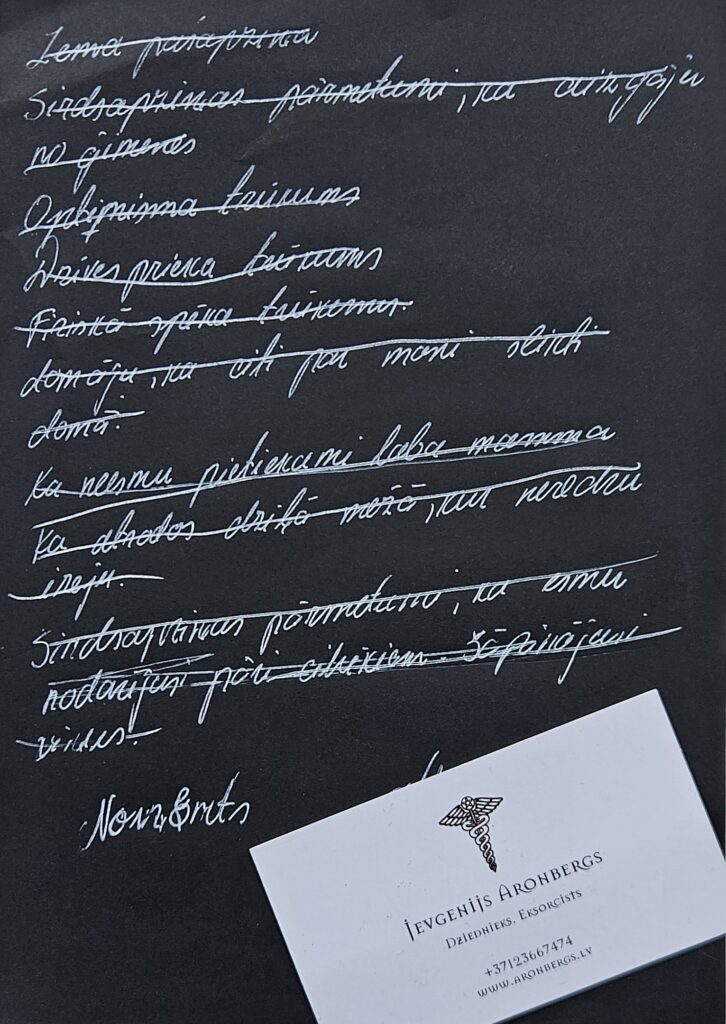 Zema pašapziņa
Sirdsapziņas pārmetumi, ka aizgāju
no ģimenes
Optimisma trūkums
Dzīves prieka trūkums
Fiziskā spēka trūkums.
domāju, ka citi par mani slikti
domā.
Ka neesmu pietiekami laba mamma
Ka atrodos dziļā mežā, kur neredzu
izeju.
Sirdsapziņas pārmetumi, ka esmu
nodarījusi pāri cilvēkiem. Sāpinājusi
viņus.
JEVGENIJS ARONBERGS
DZIEDNIEKS, EKSORCISTS
+37123667474
WWW.ARONBERGS.LV